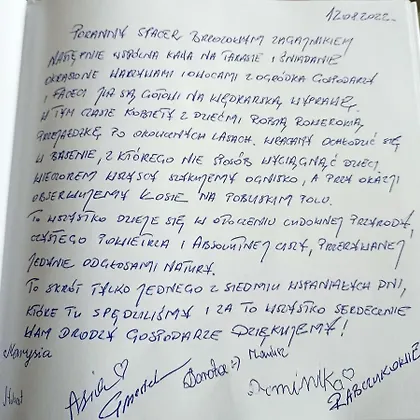 12.08.2022.
PORANNY SPACER BRZOZOWYM ZAGAJNIKIEM
NASTĘPNIE WSPÓLNA KAWA NA TARASIE I ŚNIADANIE
OKRASZONE WARZYWAMI I OWOCAMI Z OGRÓDKA GOSPODARZY
I FACECI JUŻ SĄ GOTOWI NA WĘDKARSKĄ WYPRAWĘ.
W TYM CZASIE KOBIETY Z DZIEĆMI ROBIĄ ROWEROWĄ
PRZEJAŻDŻKĘ PO OKOLICZNYCH LASACH. WRACAMY OCHŁODZIĆ SIĘ
W BASENIE, Z KTÓREGO NIE SPOSÓB WYCIĄGNĄĆ DZIECI.
WIECZOREM WSZYSCY SZYKUJEMY OGNISKO, A PRZY OKAZJI
OBSERWUJEMY ŁOSIE NA POBLISKIM POLU.
TO WSZYSTKO DZIEJE SIĘ W OTOCZENIU CUDOWNEJ PRZYRODY,
CZYSTEGO POWIETRZA I ABSOLUTNEJ CISZY, PRZERYWANEJ
JEDYNIE ODGŁOSAMI NATURY.
TO SKRÓT TYLKO JEDNEGO Z SIEDMIU WSPANIAŁYCH DNI,
KTÓRE TU SPĘDZILIŚMY I ZA TO WSZYSTKO SERDECZNIE
WAM DRODZY GOSPODARZE DZIĘKUJEMY!
Marysia
Asia ♡ Dorota :) Dominika ♡